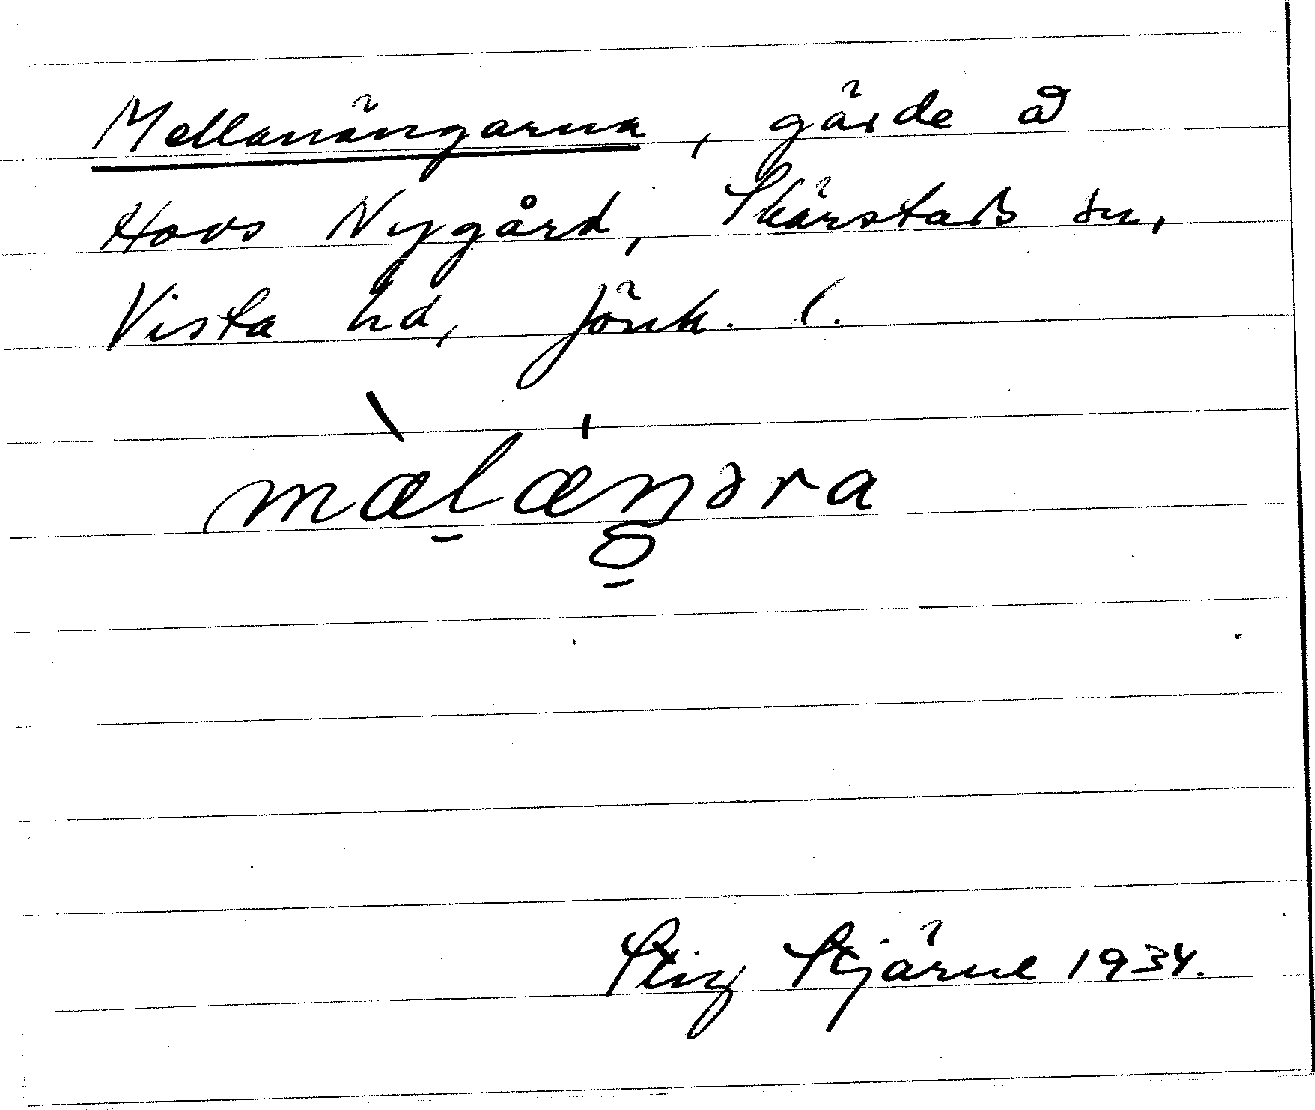 Mellanängarna, gärde å
Hovs Nygård, Skärstads sn,
Vista hd, Jönk. l.
mæ̀læŋəra
Stig Stjärne 1934.